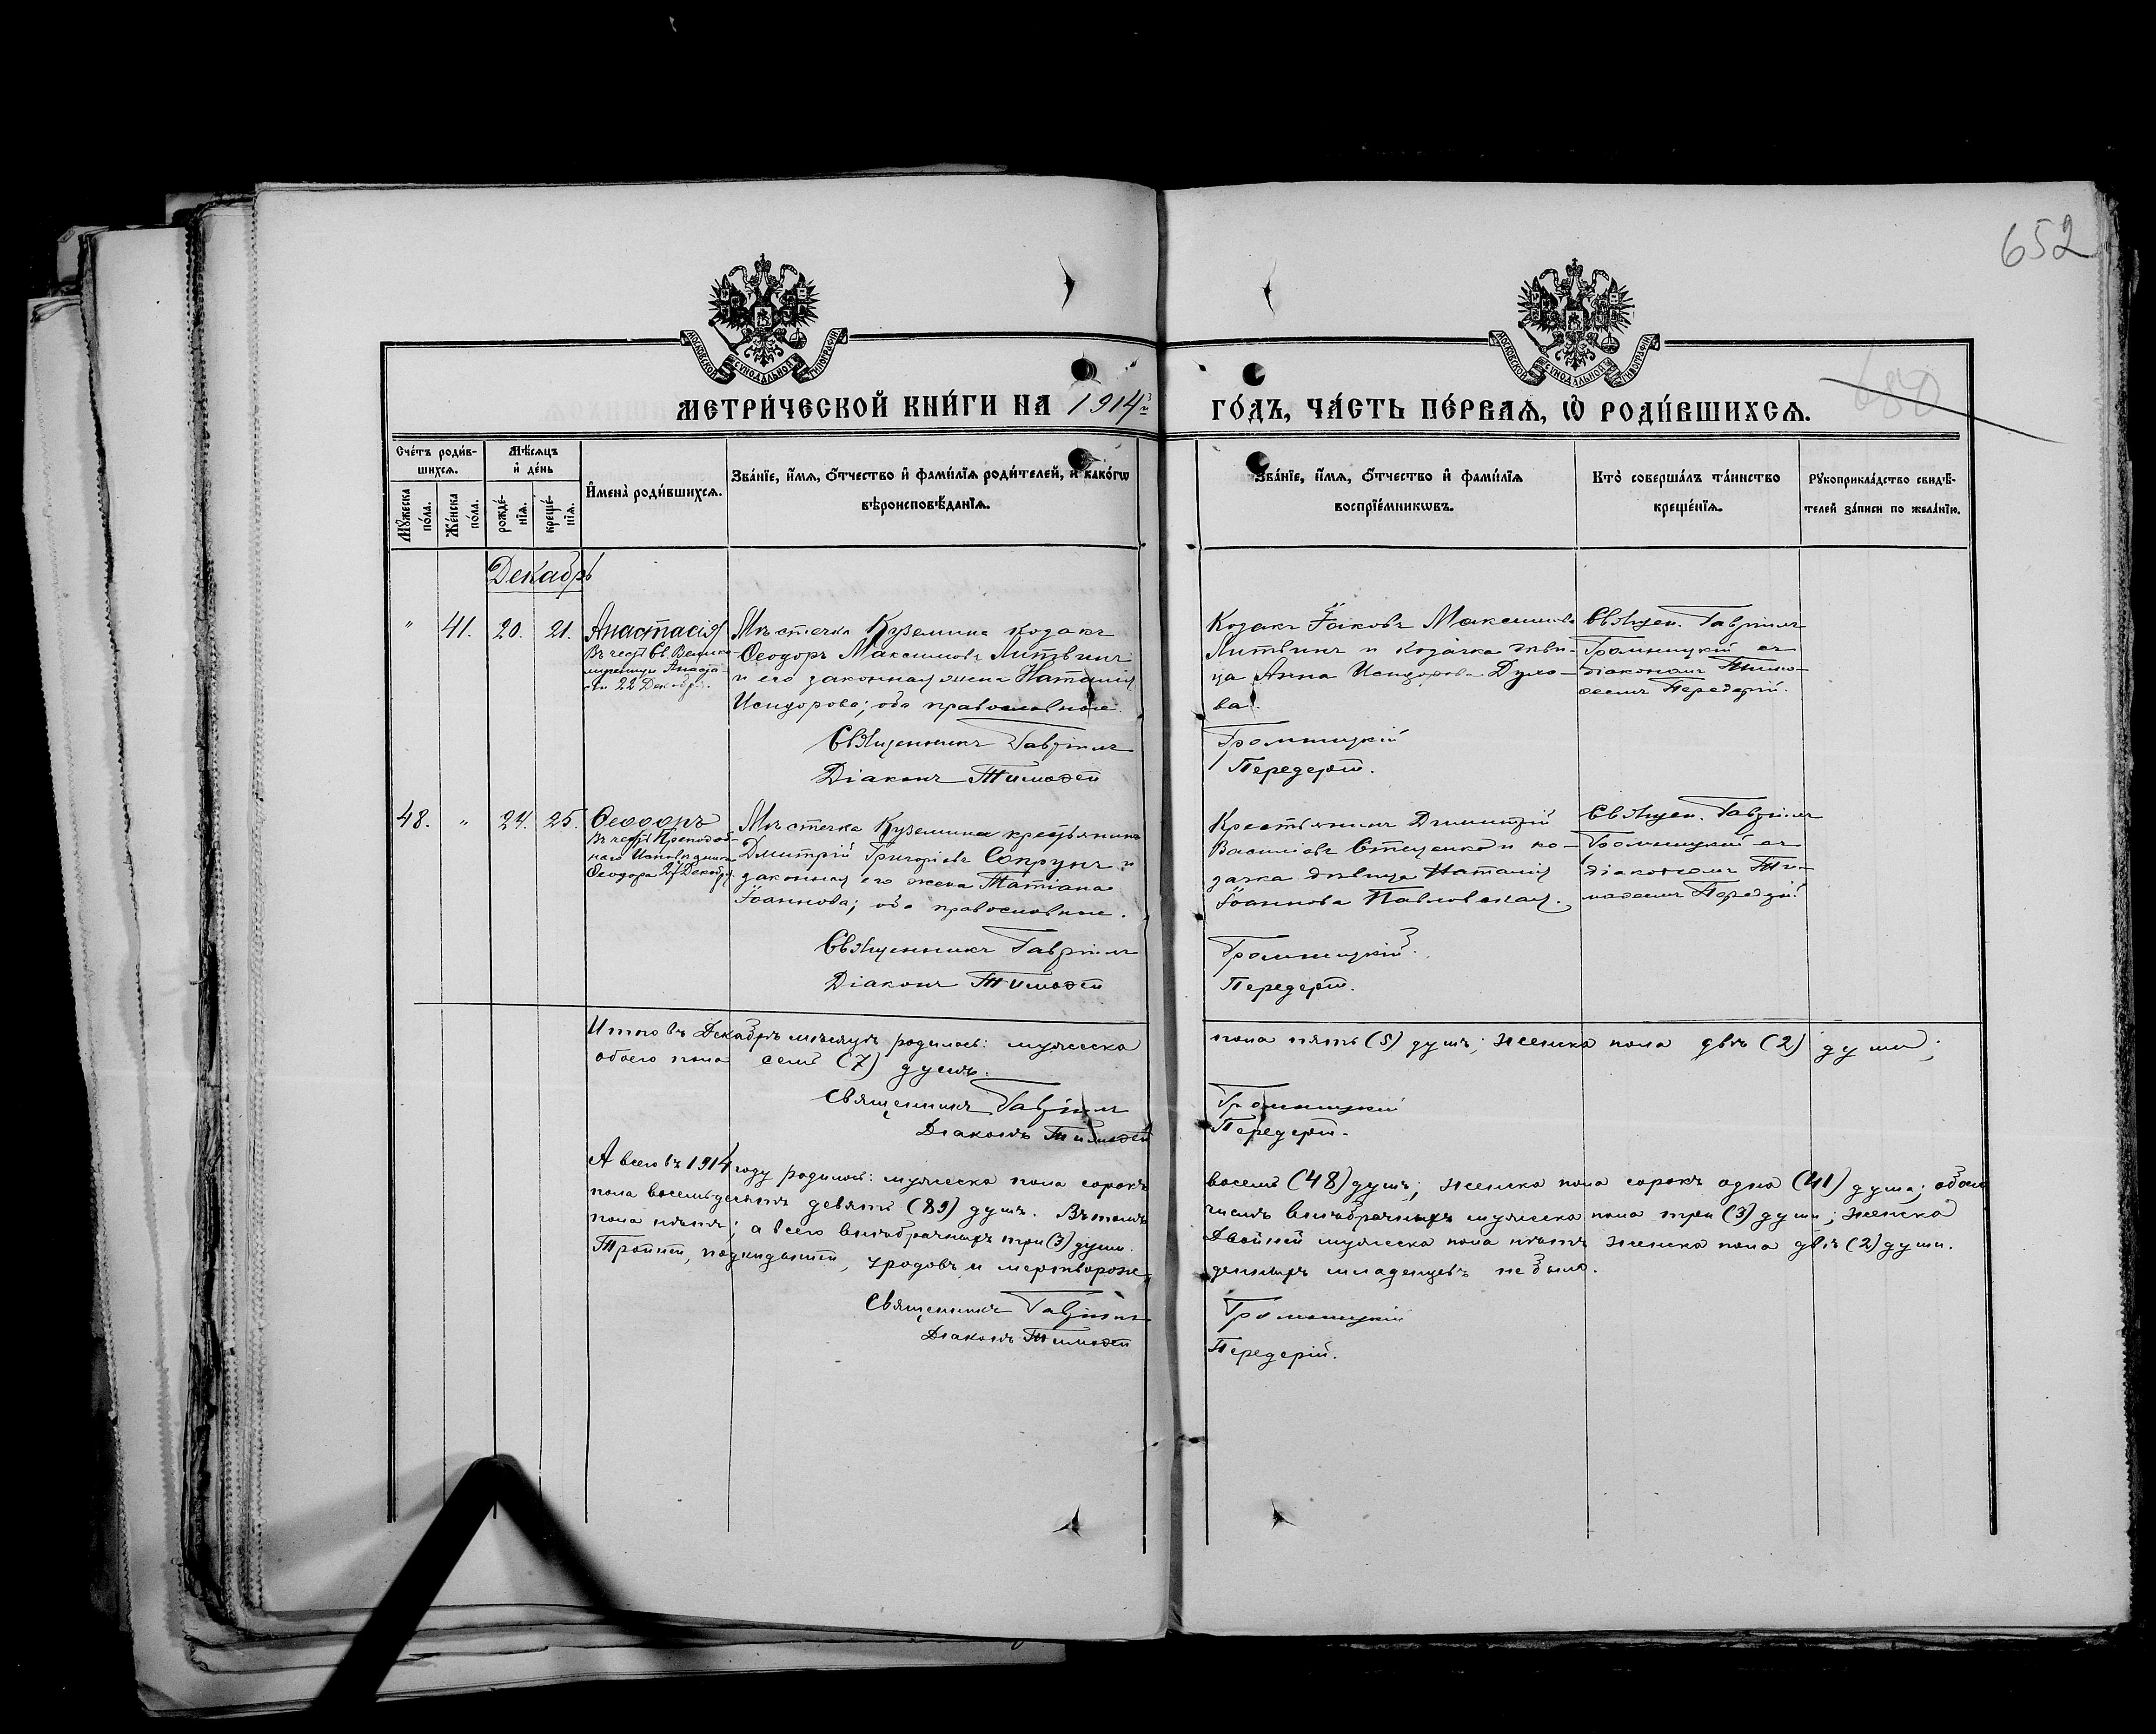 652
680
МОСКОВСКОЙ СѴНОДАЛЬНОЙ ТИПОГРАФІИ
МОСКОВСКОЙ СѴНОДАЛЬНОЙ ТИПОГРАФІИ
МЕТРИ́ЧЕСКОЙ КНИ́ГИ НА 1914 ГО́ДЪ, ЧА́СТЬ ПЕ́РВАѦ, Ѽ РОДИ́ВШИХСѦ.
Сче́тъ роди́вшихсѧ.
Мꙋ́жеска по́ла.
Же́нска по́ла.
Мѣ́сѧцъ и҆ де́нь
рожде́нїѧ.
креще́нїѧ.
И҆мена̀ роди́вшихсѧ.
Зва́нїе, и҆́мѧ, ѻ҆́тчество и҆ фами́лїѧ роди́телей, и҆ како́гѡ
вѣроисповѣ́данїѧ.
Зва́нїе, и҆́мѧ, ѻ҆́тчество и҆ фами́лїѧ
воспрїе́мникѡвъ.
Кто̀ соверша́лъ та́инство
креще́нїѧ.
Рꙋкоприкла́дство свидѣ́-
телей за́писи по жела́нїю.
Декабрь
" 41. 20. 21. Анастасія
Въ честь Св. Велико-
мученицы Анаста-
сіи 22 Декабря.
Мѣстечка Куземина козакъ
Ѳеодоръ Максимовъ Литвинъ
и его законная жена Наталія
Исидорова; оба православные.
Священникъ Гавріилъ
Діаконъ Тимоѳей
Козакъ Іаковъ Максимовъ
Литвинъ и козачка дѣви-
ца Анна Исидорова
ва.
Громницкій
Передерій.
Священ. Гавріилъ
Громницкій съ
діакономъ Тимо-
ѳеемъ Передерій.
48. " 24. 25. Ѳеодоръ
Въ честь Преподоб-
наго Исповѣдника
Ѳеодора 27 Декабря.
Мѣстечка Куземина крестьянинъ
Димитрій Григоріевъ Сопрунъ и
законная его жена Татіана
Іоаннова; оба православные.
Священникъ Гавріилъ
Діаконъ Тимоѳей
Крестьянинъ Димитрій
Василіевъ Стеценко и ко-
зачка дѣвица Наталія
Іоаннова Павловская.
Громницкій
Передерій.
Священ. Гавріилъ
Громницкій съ
діакономъ Ти-
моѳеемъ Передерій
Итого въ Декабрѣ мѣсяцѣ родилось: мужеска пола пять (5) душъ; женска пола двѣ (2) души;
обоего пола семь (7) душъ.
Священникъ Гавріилъ Громницкій
Діаконъ Тимоѳей Передерій.
А всего въ 1914 году родилось: мужеска пола сорокъ восемь (48) душъ; женска пола сорокъ одна (41) душа; обоего
пола восемьдесятъ девять (89) душъ. Въ томъ числѣ внѣбрачныхъ мужеска пола три (3) души; женска
пола нѣтъ; а всего внѣбрачныхъ три (3) души. Двойней мужеска пола нѣтъ женска пола двѣ (2) души.
Тройней, подкидышей, уродовъ и мертворож-
денныхъ младенцевъ не было.
Священникъ Гавріилъ Громницкій
Діаконъ Тимоѳей Передерій.